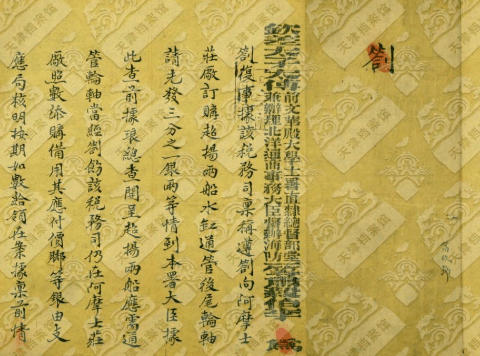 劄
太子太傅
前文華殿大學士署直隸總督部堂
兼辦理北洋通商事務大臣海防
肅毅伯李
為
劄復事據該稅務司稟稱遵劄向阿摩士
莊廠訂購超揚兩船水缸道管後尾輪軸
請先發三分之一銀兩等情到本署大臣據
此查前據琅總查開呈超揚兩船應需通
管輪軸當經劄飭該稅務司仍在阿摩士莊
廠照數添購備用其應付價腳等銀由支
應局核明按期如數給領在案據稟前情
天津档案馆